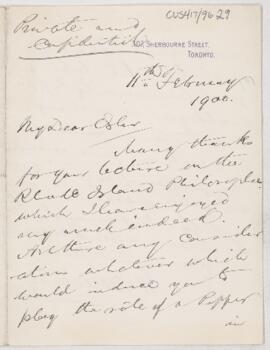 CUS417/96.29
Private and
Confidential
307, SHERBOURNE STREET,
TORONTO.
11th February
1900.
My dear Osler
Many thanks
for your lecture on the
Rhode Island Philosopher
which I have enjoyed
very much indeed.
Are there any consider
ations whatever which
would induce you to
play the rôle of a Pepper
in